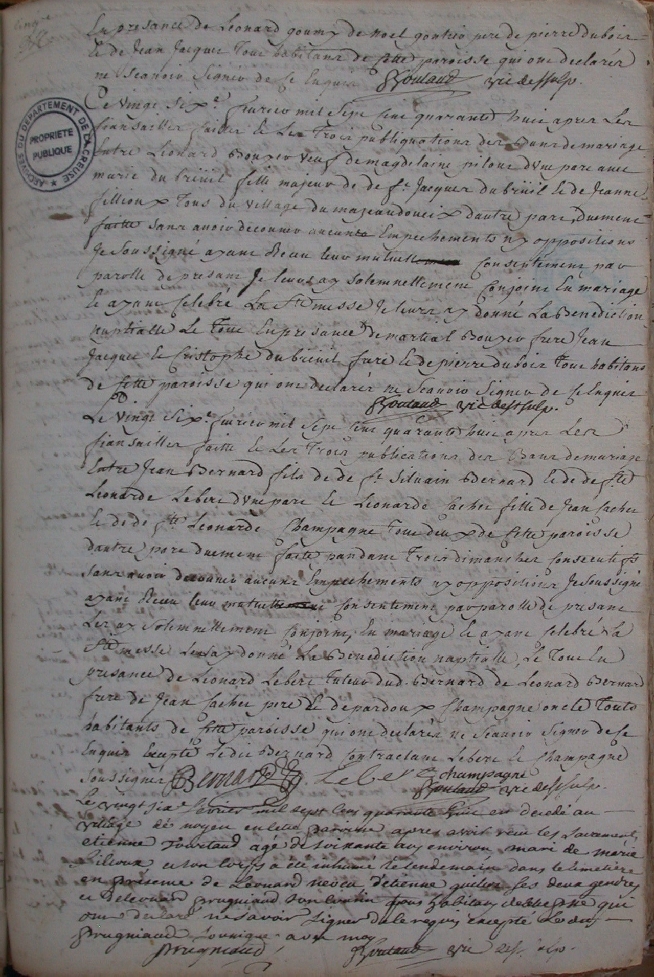 En presance de Leonard goumy de noel gontier pere de pierre duboir
et de Jean Jacques Tous habitans de cette paroisse qui ont declarér
ne scavoir signér de ce Enquis Coutaud vic de st sulp.
Ce vingt six.e fevrier mil sept cent quarante huit apres Les
fiansailles faittes et Les Trois publiquations des bans de mariage
Entre Léonard Bouyer veuf de magdelaine d'une part avec
marie du breuil fille majeur de de ft Jacques du breüil et de Jeanne
Tous du village du d'autre part, Duement
faitte sans avoir decouver aucunts Empechements ny oppositions
Je soussigné ayant Receu leur mutuelle Consentement par
parolle de presant Je leurs ay solemnellement Conjoint En mariage
Et ayant celebré La ste messe Je leurs ay donné La Benediction
nuptialle Le Tout En presance de martial Bouyer frere Jean
Jacques et Cristophe du breüil frere et de pierre duboir Tous habitans
de cette paroisse qui ont declarér ne scavoir signer de ce Enquis
Coutaud vic de st sulp.
Le Vingt Six.e fevrier mil sept cent quarante huit apres Les
fiansailles faitte et Les Trois publications des Bans de mariage
Entre Jean Bernard fils de de ft Silvain Bernard et de de fte
Leonarde Lebere d'une part et Leonarde fille de Jean
et de de fte Leonarde Champagne Tous deux de cette paroisse
d'autre part duement faitte pandant Trois dimanches consecutifs
sans avoir decouver aucuns Empechements ny opposition Je soussigné
ayant Receu leur mutuelle Consentement par parolle de presant
Les ay solemnellement conjoint En mariage et ayant celebré La
ste messe Les ay donné La Benediction nuptialle Le Tout En
presance de Leonard Lebere Tuteur dud. Bernard de Leonard Bernard
frere de Jean pere et de pardoux Champagne oncle Touts
habitants de cette paroisse qui ont declarér ne scavoir signer de ce
Enquis Exepté Ledit Bernard Contractant Lebere et Champagne
soussignér Bernard Leber Champagne
Coutaud vic de st sulp.
Le vingt six fevrier mil sept cens quarante huit est decedé au
village de noyen en cette paroisse apres avoir reçu les sacrements,
etienne agé de soixante ans environ mari de marie
et son corps a été inhumé le lendemain dans le cimetiere
en presence de Leonard d'etienne ses deux gendres
et de Leonard prugniaud son cousin tous habitans de cette psse qui
ont declaré ne savoir signer de ce requis excepté Ledit
prugniaud avec moy
prugniaud Coutaud vic de st sulp.
ARCHIVES DU DEPARTEMENT DE LA CREUSE
PROPRIÉTÉ
PUBLIQUE